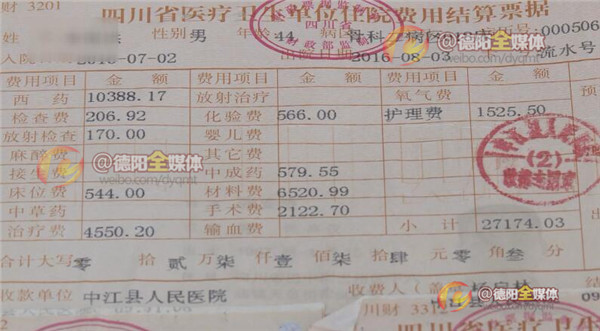 财 3201 四川省医疗卫生单位住院费用结算票据
性别 男 年龄 44 骨科 病区 000506
2016-07-02 2016-08-03 流水号
费用项目 金 额 费用项目 金 额 费用项目 金 额
西 药 10388.17 放射治疗 氧气费
检查费 206.92 化验费 566.00 护理费 1525.50
放射检查 170.00 婴儿费
麻醉费 其它费
接 费 中成药 579.55
床位费 544.00 材料费 6520.99
中草药 手术费 2122.70
治疗费 4550.20 输血费 小 计 27174.03
合计大写 零 拾 贰 万 柒 仟 壹 佰 柒 拾 肆 元 零 角 叁 分
收款单位 中江县人民医院 收费人
川财 331
四川省医疗卫生
@德阳全媒体
weibo.com/dyqmt
@德阳全媒体
weibo.com/dyqmt
@德阳全媒体
weibo.com/dyqmt
(2)